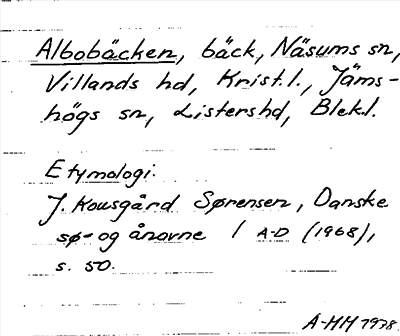 Albobäcken, bäck, Näsums sn,
Villands hd, Krist.l., Jäms-
högs sn, Listers hd, Blek.l.
Etymologi:
J. Kousgård Sørensen, Danske
sø- og ånavne I A-D (1968),
s. 50.
A-MH 1978